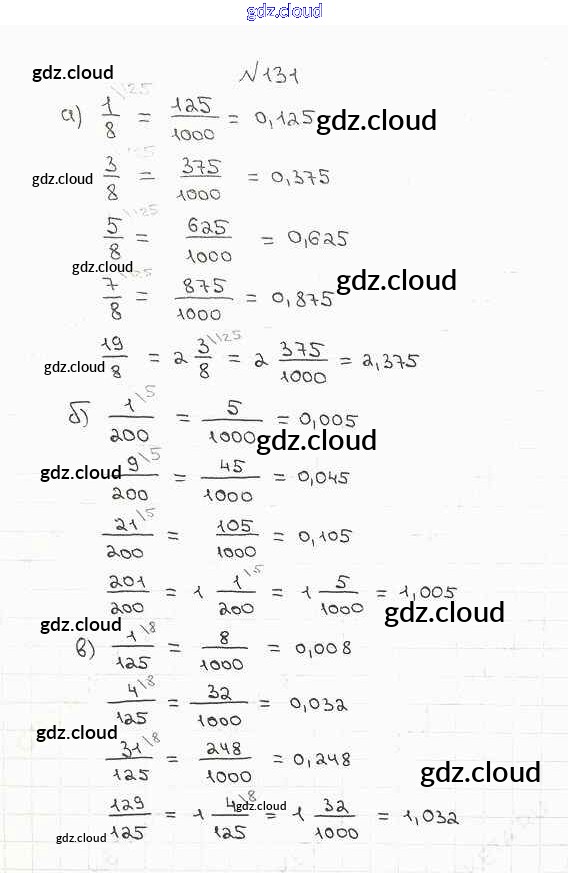 gdz.cloud
gdz.cloud
№131
а) 1\125/8 = 125/1000 = 0,125 gdz.cloud
gdz.cloud 3\125/8 = 375/1000 = 0,375
5\125/8 = 625/1000 = 0,625
gdz.cloud
7\125/8 = 875/1000 = 0,875 gdz.cloud
gdz.cloud 19/8 = 2 3\125/8 = 2 375/1000 = 2,375
б) 1\5/200 = 5/1000 = 0,005
gdz.cloud
gdz.cloud 9\5/200 = 45/1000 = 0,045
21\5/200 = 105/1000 = 0,105
201/200 = 1 1\5/200 = 1 5/1000 = 1,005
gdz.cloud
gdz.cloud
в) 1\8/125 = 8/1000 = 0,008
4\8/125 = 32/1000 = 0,032
gdz.cloud
31\8/125 = 248/1000 = 0,248
gdz.cloud
129/125 = 1 4\8/125 = 1 32/1000 = 1,032
gdz.cloud
gdz.cloud